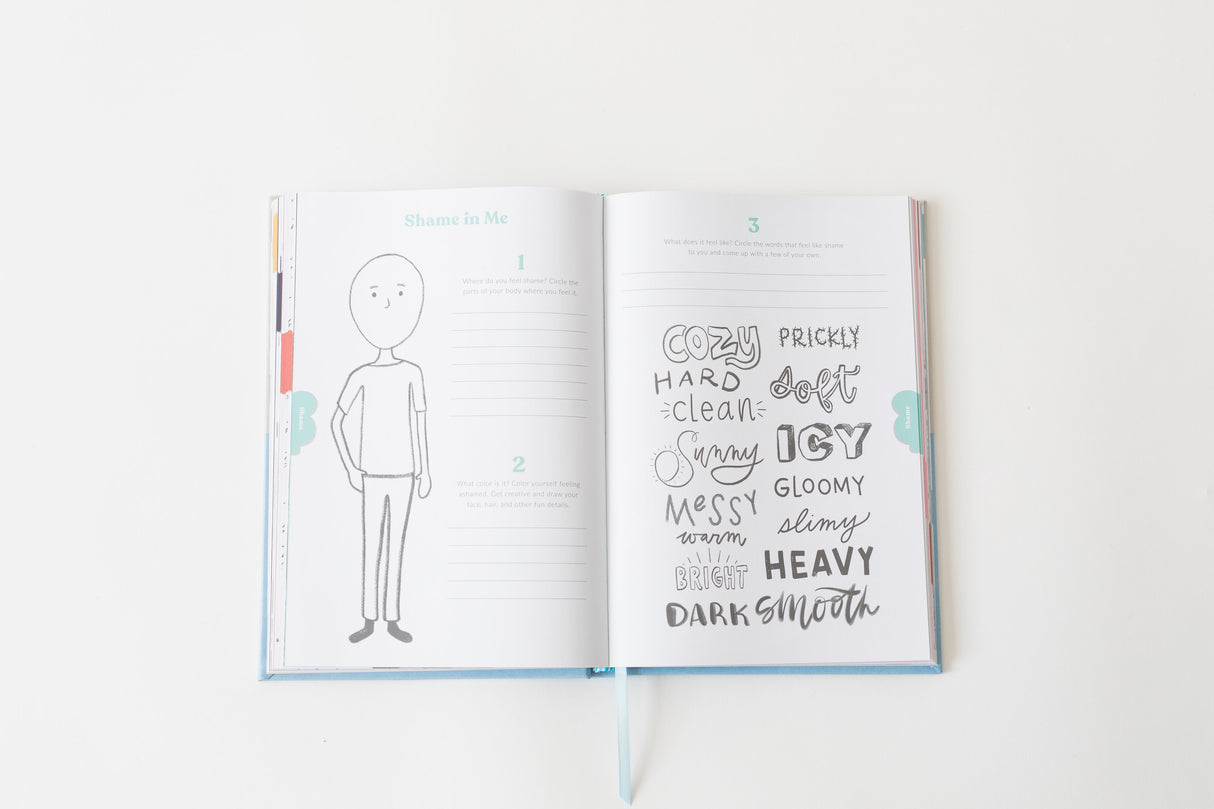 Shame in Me
1
Where do you feel shame? Circle the
parts of your body where you feel it.
2
What color is it? Color yourself feeling
ashamed. Get creative and draw your
face, hair, and other fun details.
Shame
3
What does it feel like? Circle the words that feel like shame
to you and come up with a few of your own.
COZY
PRICKLY
HARD
soft
clean
Sunny
ICY
MeSSY
GLOOMY
warm
slimy
BRIGHT
HEAVY
DARK
smooth
Shame